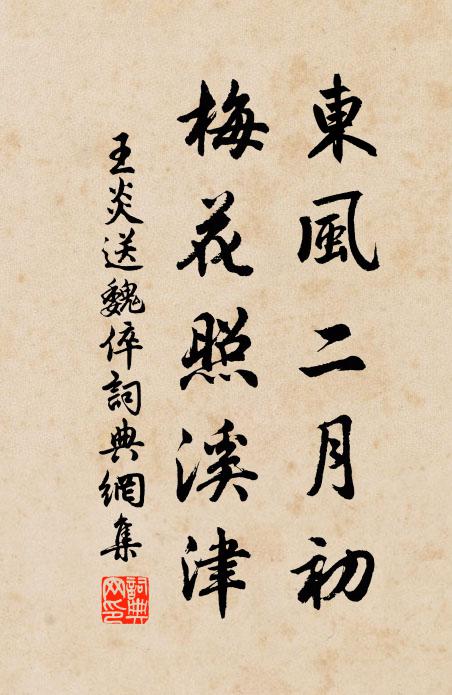 東風二月初
梅花照溪津
王炎送魏倅詞典網集
詞典網印